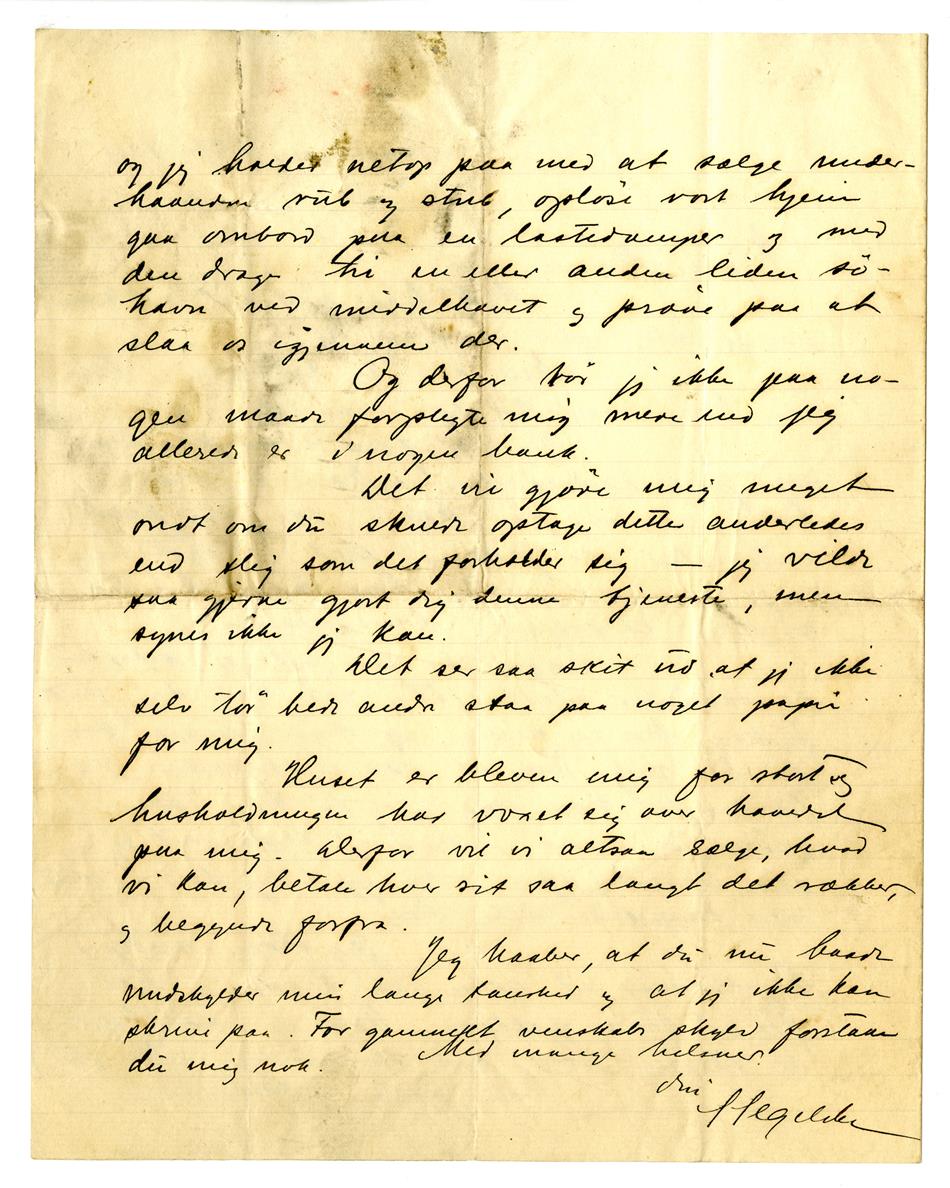 og jeg holder netop paa med at sælge under-
haanden rub og stub, opløse vort hjem
gaa ombord paa en lastedamper og med
den drage til en eller anden liden sö-
havn ved middelhavet og pröve paa at
slaa os igjennem der.
Og derfor tör jeg ikke paa no-
gen maade forpligte mig mere end jeg
allerede er i nogen bank.
Det vil gjöre mig meget
ondt om du skulde optage dette anderledes
end slig som det forholder sig — jeg vilde
saa gjerne gjort dig denne tjeneste, men
synes ikke jeg kan.
Det ser saa skit ud at jeg ikke
selv tör bede andre staa paa noget papir
for mig.
Huset er bleven mig for stort og
husholdningen har voxet sig over hovedet
paa mig. Derfor vil vi altsaa sælge, hvad
vi kan, betale hver sit saa langt det rækker,
og begynde forfra.
Jeg haaber, at du nu baade
undskylder min lange taushed og at jeg ikke kan
skrive paa. For gammelt venskabs skyld forstaar
du mig nok. Med mange hilsner
din